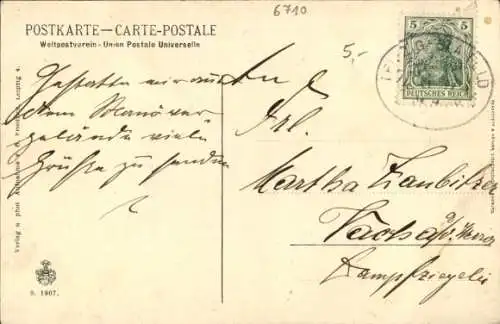 6710
POSTKARTE—CARTE-POSTALE
Weltpostverein - Union Postale Universelle
5,-
5 5
DEUTSCHES REICH
Gestatten mir aus
dem Manöver-
gelände viele
Grüße zu senden
Frl.
Martha Zaubitzer
Vacha a/d. Werra
Dampfziegelei
Verlag u. phot.
Leipzig 4.
S. 1907.